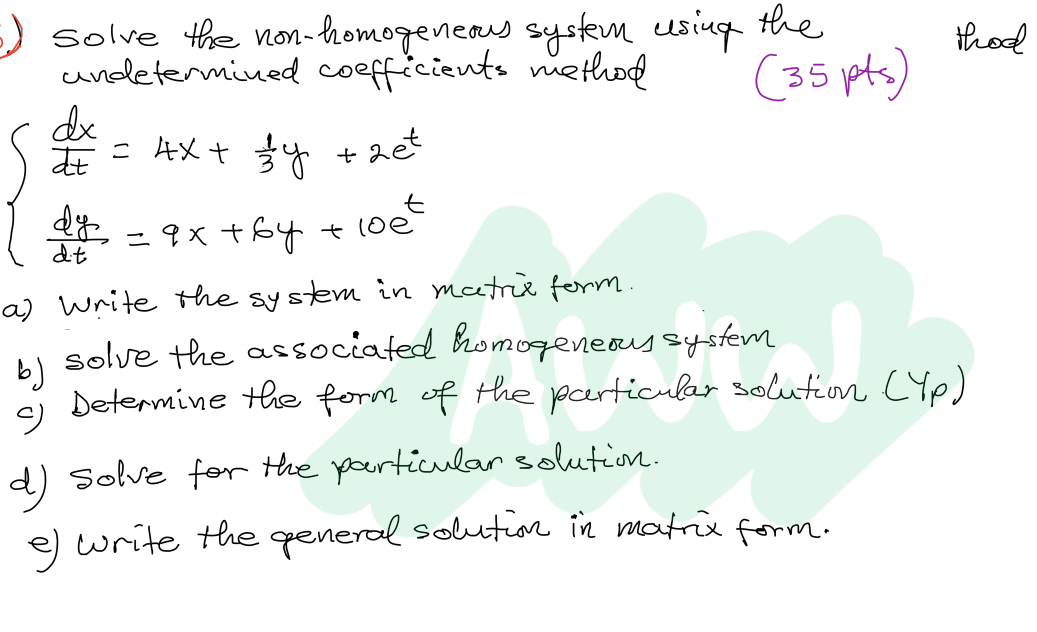 solve the non-homogeneous system using the thod
undetermined coefficients method (35 pts)
dx/dt = 4x + 1/3 y + 2e^t
dy/dt = 9x + 6y + 10e^t
a) Write the system in matrix form.
b) solve the associated homogeneous system
c) Determine the form of the particular solution (Yp)
d) Solve for the particular solution.
e) Write the general solution in matrix form.